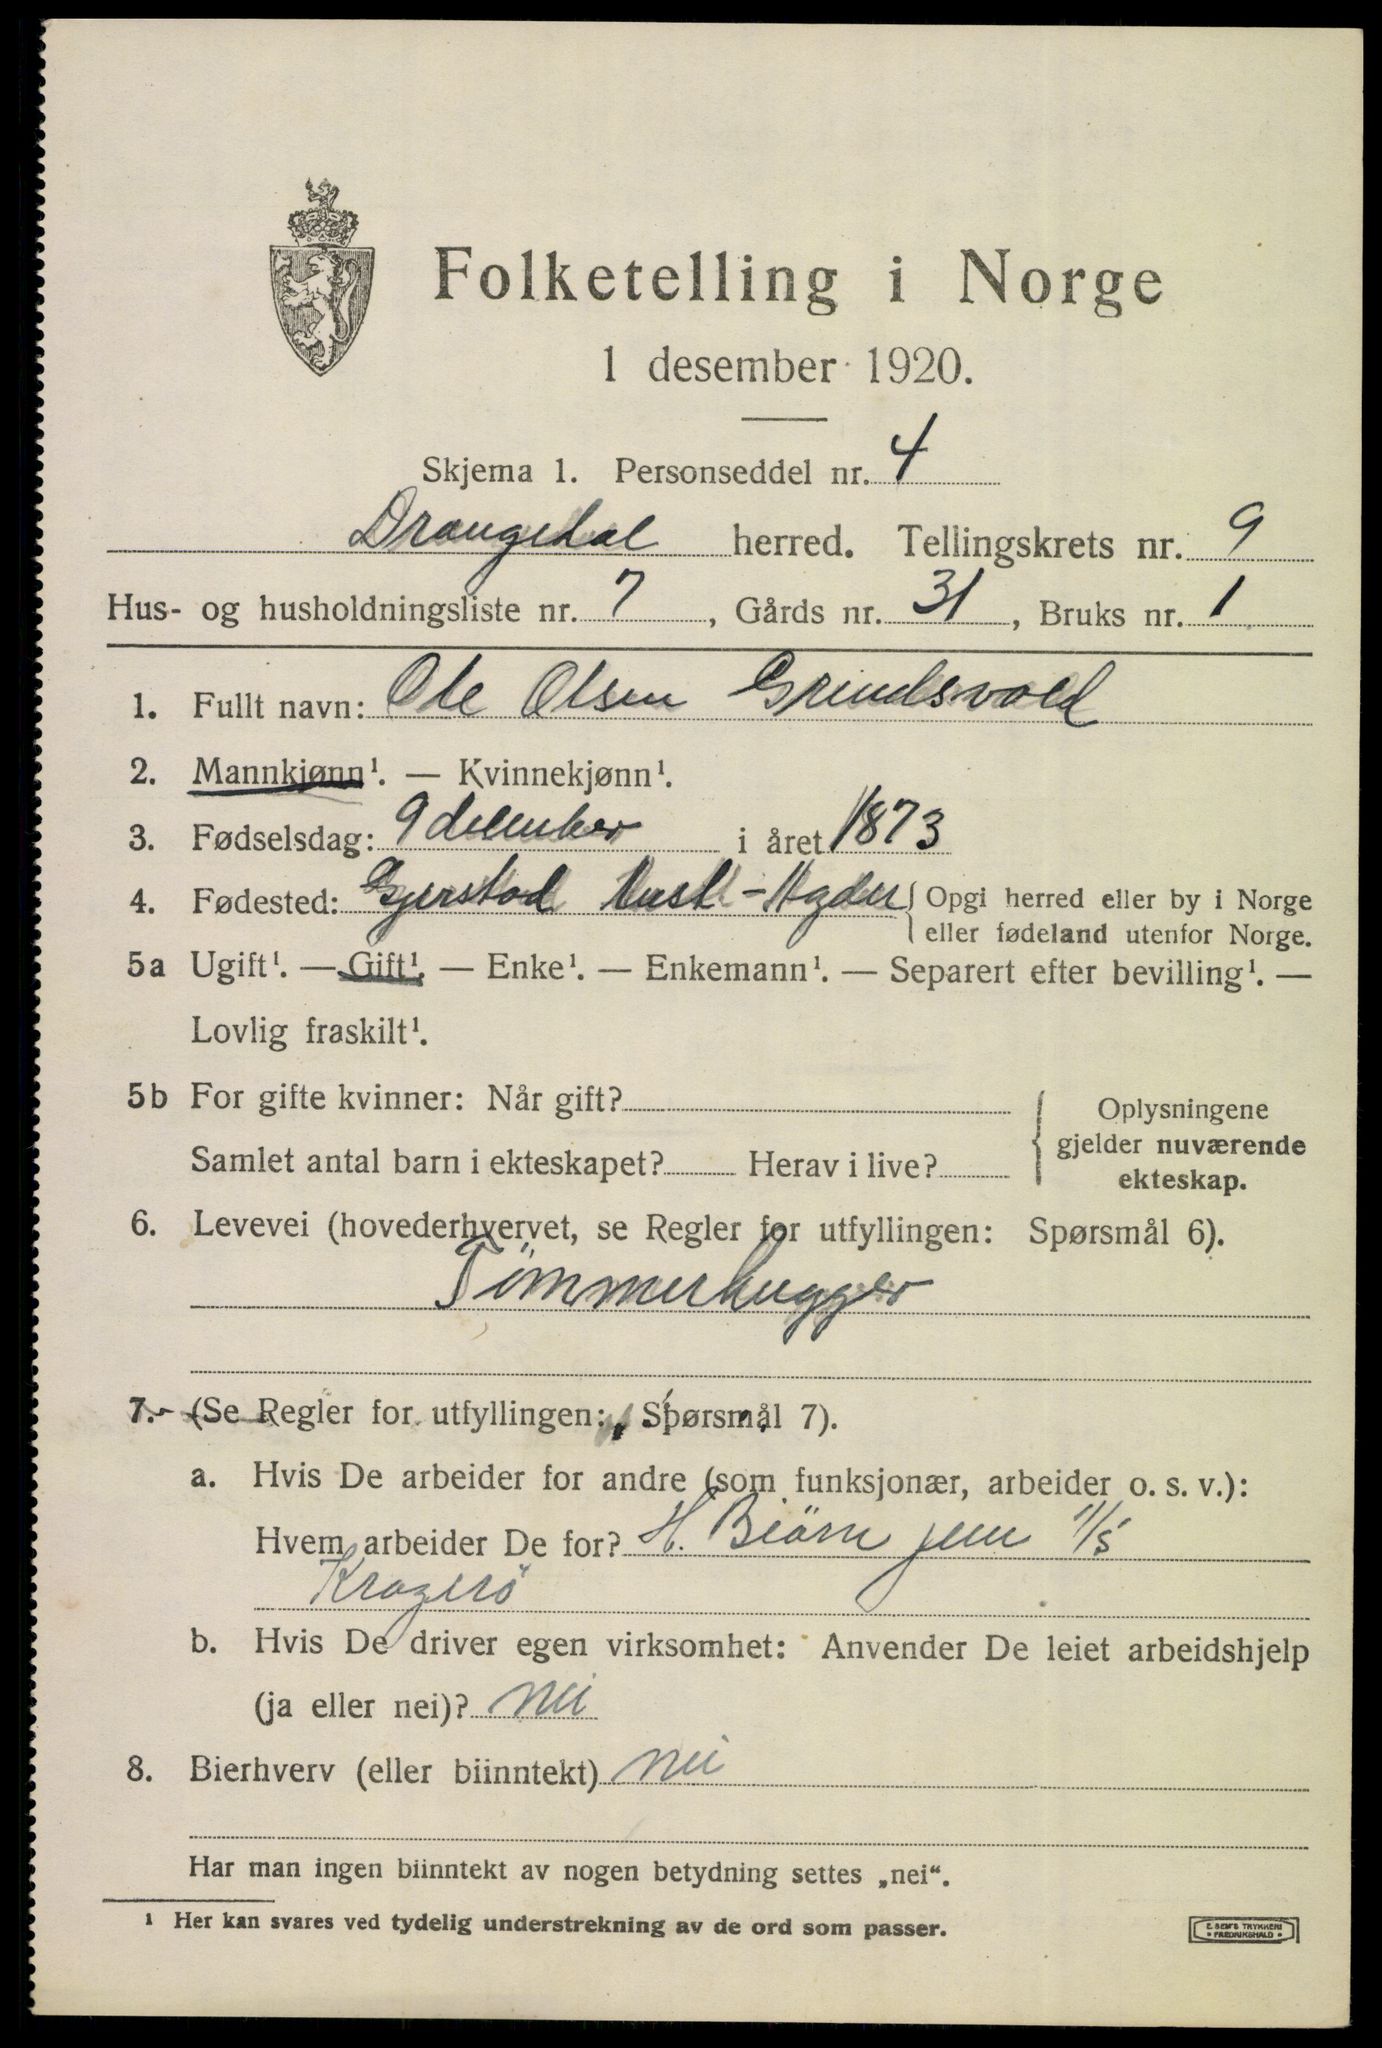 Folketelling i Norge
1 desember 1920.
Skjema 1. Personseddel nr. 4
Drangedal herred. Tellingskrets nr. 9
Hus- og husholdningsliste nr. 7, Gårds nr. 31, Bruks nr. 1
1. Fullt navn: Ole Olsen Grindsvold
2. Mannkjønn¹. — Kvinnekjønn¹.
3. Fødselsdag: 9 desember i året 1873
4. Fødested: Gjerstad -Agder { Opgi herred eller by i Norge
eller fødeland utenfor Norge.
5a Ugift¹. — Gift¹. — Enke¹. — Enkemann¹. — Separert efter bevilling¹. —
Lovlig fraskilt¹.
5b For gifte kvinner: Når gift?
Samlet antal barn i ekteskapet? Herav i live?
Oplysningene
gjelder nuværende
ekteskap.
6. Levevei (hovederhvervet, se Regler for utfyllingen: Spørsmål 6).
Tömmerhugger
7. (Se Regler for utfyllingen: Spørsmål 7).
a. Hvis De arbeider for andre (som funksjonær, arbeider o. s. v.):
Hvem arbeider De for? H. Biörn jun
Kragerö
b. Hvis De driver egen virksomhet: Anvender De leiet arbeidshjelp
(ja eller nei)? nei
8. Bierhverv (eller biinntekt) nei
Har man ingen biinntekt av nogen betydning settes „nei“.
¹ Her kan svares ved tydelig understrekning av de ord som passer.
E. SEM'S TRYKKERI
• FREDRIKSHALD •